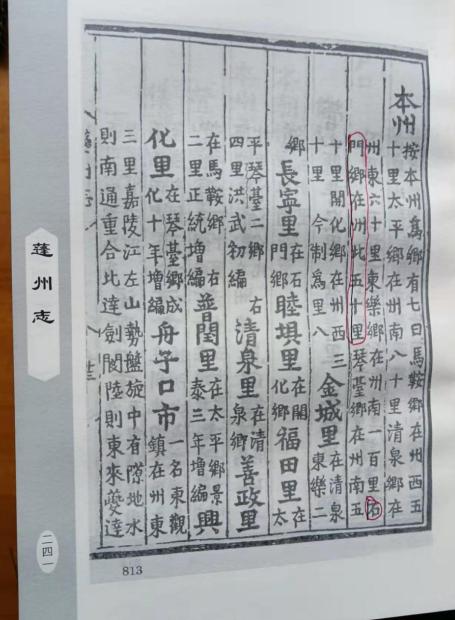 本州
按本州為鄉有七曰馬鞍鄉在州西五
十里太平鄉在州南八十里清泉鄉在
州東六十里東樂鄉在州南一百里石
門鄉在州北五十里琴臺鄉在州南五
十里開化鄉在州西三
十里 今制為里八
金城里 在清泉
東樂二
鄉 長寧里 在石
門鄉 睦埧里 在開
化鄉 福田里 在
太
平琴臺二鄉 右
四里洪武初編
清泉里 在清
泉鄉 善政里
在馬鞍鄉 右
二里正統增編
普閏里 在太平鄉景
泰三年增編 興
化里 在琴臺鄉成
化十年增編
舟子口市 一名東觀
鎮在州東
三里嘉陵江左山勢盤旋中有隙地水
則南通重合北達劍閬陸則東來夔達
蓬州志
二四一
813